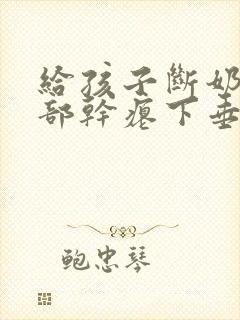 給孩子斷奶
部幹癟下垂
鮑忠琴